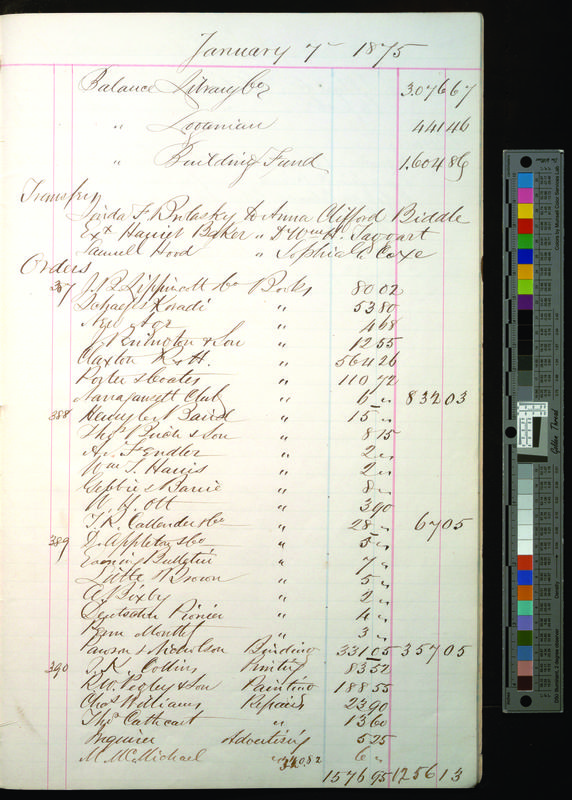 January 7 1875
Balance Library Co 3.076 67
" Loganian 441 46
" Building Fund 1.604 86
Transfers
F. Pulasky to Anna Clifford Biddle
Ex Baker " Wm H. Taggart
Samuel Hood " Sophia C Coxe
Orders
387 J. B. Lippincott & Co Books 80 02
Schaefer & Koradi " 53 80
New Age " 4 68
J. Penington & Son " 12 55
Claxton R & H. " 564 26
Porter & Coates " 110 72
Narragansett Club " 6 " 832 03
388 Henry C. Baird " 15 "
Thos & Son " 8 15
A. Fendler " 2 "
Wm T. Harris " 2 "
Gebbie & Barrie " 8 "
W. H. Ott " 3 90
T. R. Callender & Co " 28 " 67 05
389 D. Appleton & Co " 5 "
Evening Bulletin " 7 "
Little Brown " 5 "
A. Bixby " 2 "
Deutsche Pionier " 4 "
Penn Monthly " 3 "
Pawson & Nicholson Binding 331 05 357 05
390 Collins Printing 83 52
R. W. & Son Painting 188 55
Chas Williams Repairs 23 90
Thos Cathcart " 13 60
Inquirer Advertising 5 25
M. McMichael " 6 "
1576 95 1256 13